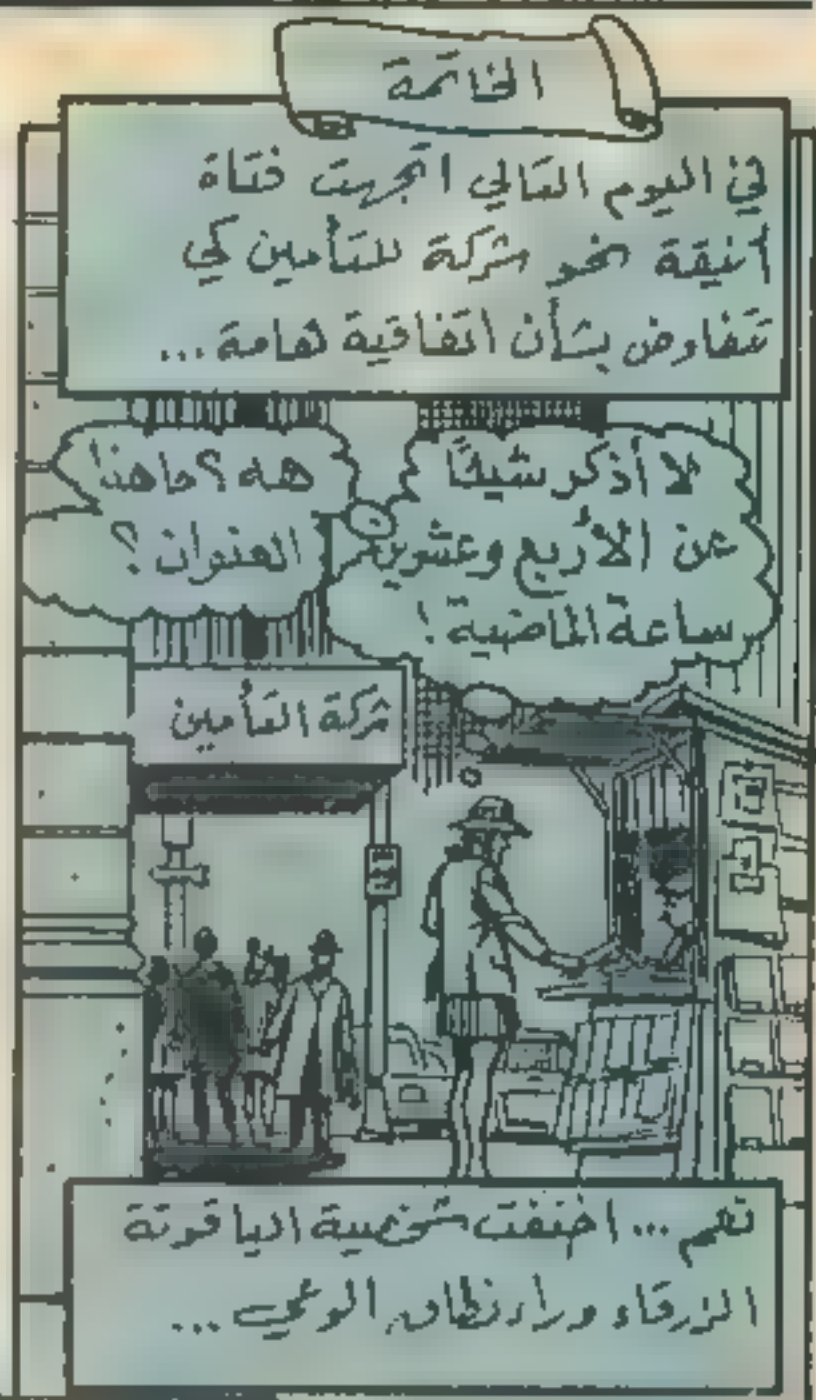 الخاتمة
في اليوم التالي اتجهت فتاة
أنيقة نحو شركة للتأمين كي
تتفاوض بشأن اتفاقية هامة...
لا أذكر شيئًا
عن الأربع وعشرين
ساعة الماضية!
هه؟ ما هذا
العنوان؟
شركة التأمين
نعم... اختفت شخصية الياقوتة
الزرقاء وراء نطاق الوعي...